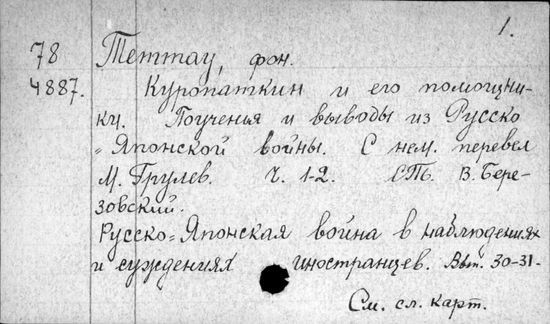 1.
78 Теттау, фон.
4887. Куропаткин и его помощни-
ки. Поученья и выводы из Русско
=Японской войны. С нем. перевел
М. Грулев. Ч. 1-2. СПб. В. Бере-
зовский.
Русско=Японская война в наблюдениях
и суждениях иностранцев. Вып. 30-31-
См. сл. карт.